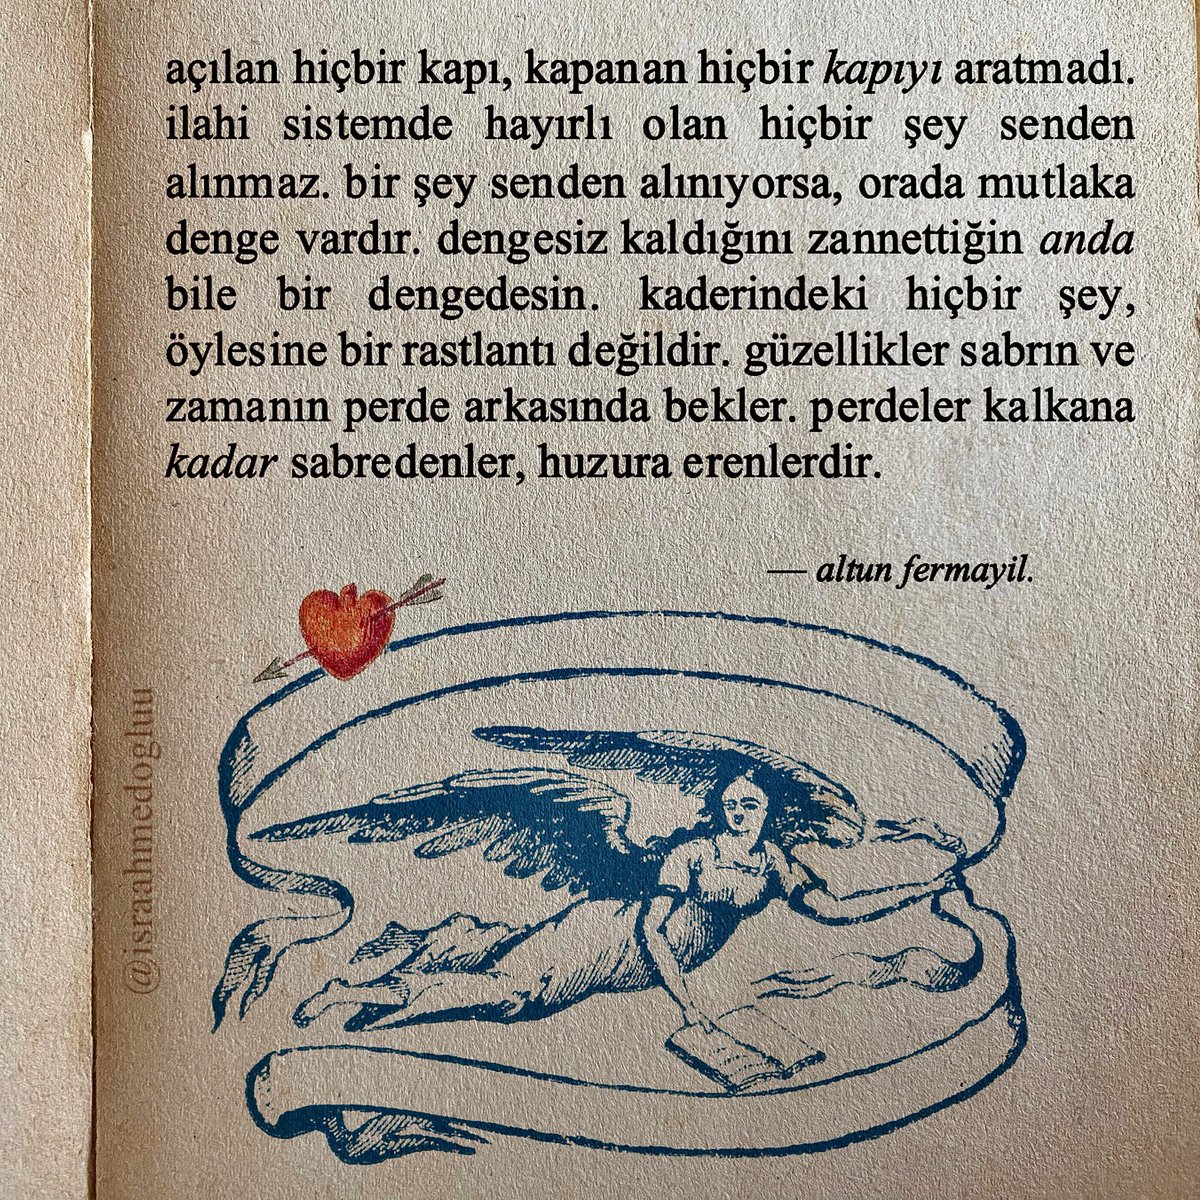 açılan hiçbir kapı, kapanan hiçbir kapıyı aratmadı.
ilahi sistemde hayırlı olan hiçbir şey senden
alınmaz. bir şey senden alınıyorsa, orada mutlaka
denge vardır. dengesiz kaldığını zannettiğin anda
bile bir dengedesin. kaderindeki hiçbir şey,
öylesine bir rastlantı değildir. güzellikler sabrın ve
zamanın perde arkasında bekler. perdeler kalkana
kadar sabredenler, huzura erenlerdir.
— altun fermayil.
@israahmedogluu